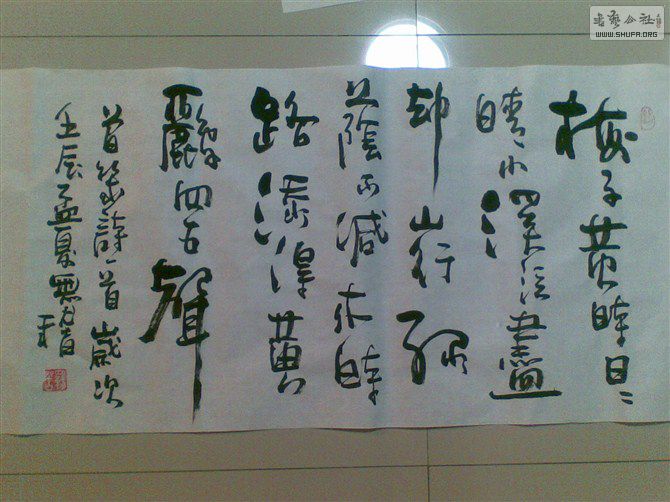 書藝公社
WWW.SHUFA.ORG
梅子黄時日〻
晴小溪泛盡
却山行緑
蔭不減来時
路添得黄
鸝四五聲
曾幾詩一首歲次
壬辰孟夏